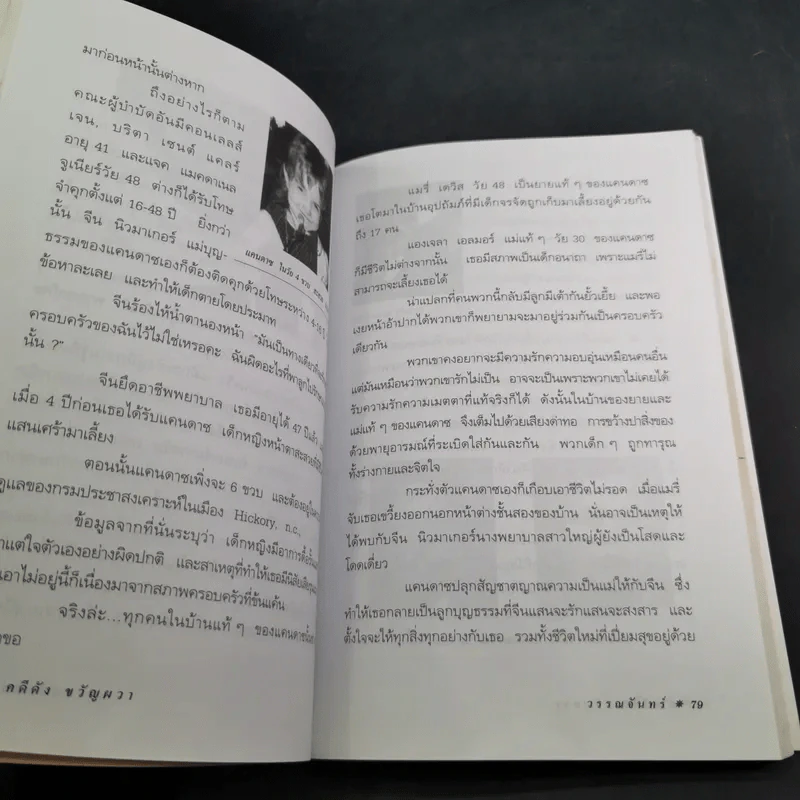 มาก่อนหน้านั้นต่างหาก
ถึงอย่างไรก็ตาม
คณะผู้บำบัดอันมีคอนเลลส์
เจน, บริตา เซนต์ แคลร์
อายุ 41 และแจค แมคดาเนล
จูเนียร์วัย 48 ต่างก็ได้รับโทษ
จำคุกตั้งแต่ 16-48 ปี ยิ่งกว่า
นั้น จีน นิวมาเกอร์ แม่บุญ-
ธรรมของแคนดาซเองก็ต้องติดคุกด้วยโทษระหว่าง 4-16 ปี
ข้อหาละเลย และทำให้เด็กตายโดยประมาท
แคนดาซ ในวัย 4 ขวบ
จีนร้องไห้น้ำตานองหน้า "มันเป็นทางเดียว
ครอบครัวของฉันไว้ไม่ใช่เหรอคะ ฉันผิดอะไรที่พาลูกไป
นั้น ?"
จีนยึดอาชีพพยาบาล เธอมีอายุได้ 47 ปีแล้ว
เมื่อ 4 ปีก่อนเธอได้รับแคนดาซ เด็กหญิงหน้าตาสะสวย
แสนเศร้ามาเลี้ยง
ตอนนั้นแคนดาซเพิ่งจะ 6 ขวบ และต้องอยู่ใน
ดูแลของกรมประชาสงเคราะห์ในเมือง Hickory, n.c.,
ข้อมูลจากที่นั่นระบุว่า เด็กหญิงมีอาการดื้อรั้น
าแต่ใจตัวเองอย่างผิดปกติ และสาเหตุที่ทำให้เธอมีนิสัย
นเอาไม่อยู่นี้ก็เนื่องมาจากสภาพครอบครัวที่ข้นแค้น
จริงล่ะ...ทุกคนในบ้านแท้ ๆ ของแคนดาซ
คดีดัง ขวัญผวา
แมรี่ เดวิส วัย 48 เป็นยายแท้ ๆ ของแคนดาซ
เธอโตมาในบ้านอุปถัมภ์ที่มีเด็กจรจัดถูกเก็บมาเลี้ยงอยู่ด้วยกัน
ถึง 17 คน
แองเจลา เอลมอร์ แม่แท้ ๆ วัย 30 ของแคนดาซ
ก็มีชีวิตไม่ต่างจากนั้น เธอมีสภาพเป็นเด็กอนาถา เพราะแมรี่ไม่
สามารถจะเลี้ยงเธอได้
น่าแปลกที่คนพวกนี้กลับมีลูกมีเต้ากันยั้วเยี้ย และพอ
เงยหน้าอ้าปากได้พวกเขาก็พยายามจะมาอยู่ร่วมกันเป็นครอบครัว
เดียวกัน
พวกเขาคงอยากจะมีความรักความอบอุ่นเหมือนคนอื่น
แต่มันเหมือนว่าพวกเขารักไม่เป็น อาจจะเป็นเพราะพวกเขาไม่เคยได้
รับความรักความเมตตาที่แท้จริงก็ได้ ดังนั้นในบ้านของยายและ
แม่แท้ ๆ ของแคนดาซ จึงเต็มไปด้วยเสียงด่าทอ การขว้างปาสิ่งของ
ด้วยพายุอารมณ์ที่ระเบิดใส่กันและกัน พวกเด็ก ๆ ถูกทารุณ
ทั้งร่างกายและจิตใจ
กระทั่งตัวแคนดาซเองก็เกือบเอาชีวิตไม่รอด เมื่อแมรี่
จับเธอเขวี้ยงออกนอกหน้าต่างชั้นสองของบ้าน นั่นอาจเป็นเหตุให้
ได้พบกับจีน นิวมาเกอร์นางพยาบาลสาวใหญ่ผู้ยังเป็นโสดและ
โดดเดี่ยว
แคนดาซปลุกสัญชาตญาณความเป็นแม่ให้กับจีน ซึ่ง
ทำให้เธอกลายเป็นลูกบุญธรรมที่จีนแสนจะรักแสนจะสงสาร และ
ตั้งใจจะให้ทุกสิ่งทุกอย่างกับเธอ รวมทั้งชีวิตใหม่ที่เปี่ยมสุขอยู่ด้วย
วรรณจันทร์ ✷ 79